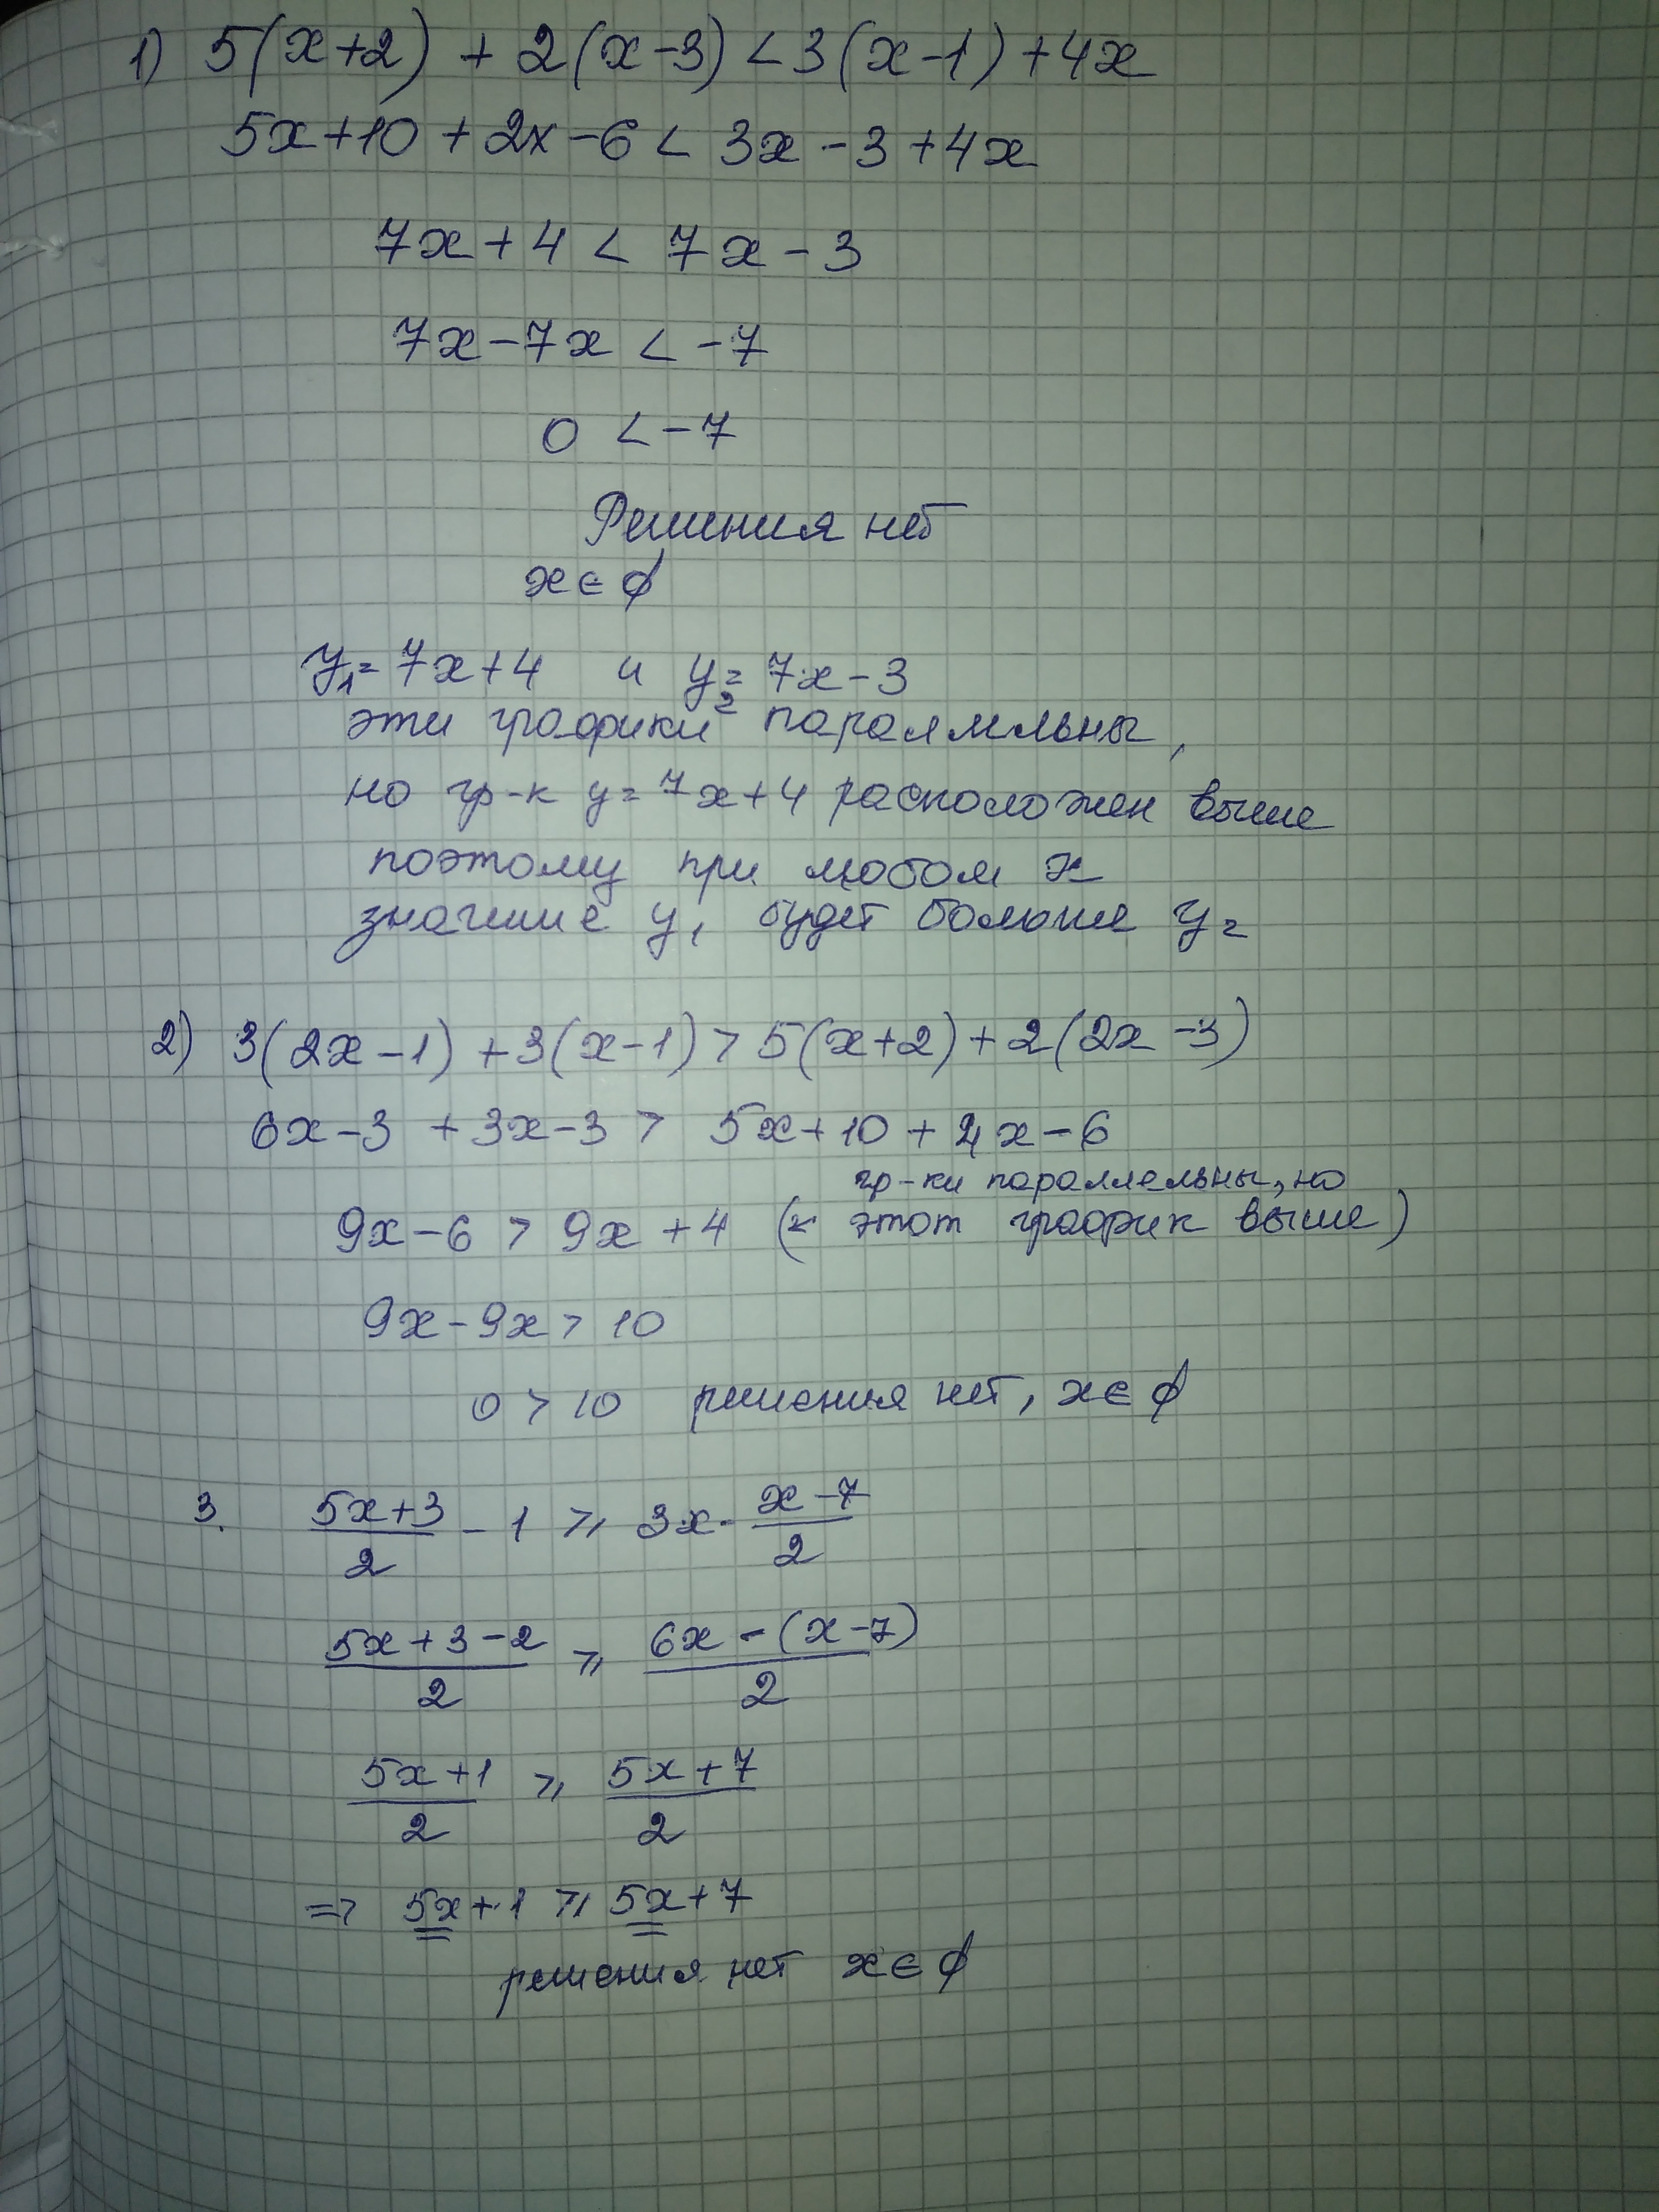 1) 5(x+2) + 2(x-3) < 3(x-1) + 4x
5x+10 + 2x-6 < 3x-3+4x
7x+4 < 7x-3
7x-7x < -7
0 < -7
Решения нет
x∈∅
y₁=7x+4 и y₂=7x-3
эти графики параллельны,
но гр-к y=7x+4 расположен выше
поэтому при любом x
значение y₁ будет больше y₂
2) 3(2x-1) + 3(x-1) > 5(x+2) + 2(2x-3)
6x-3 + 3x-3 > 5x+10 + 4x-6
гр-ки параллельны, но
9x-6 > 9x+4 (← этот график выше)
9x-9x > 10
0 > 10 решения нет, x∈∅
3. (5x+3)/2 - 1 ⩾ 3x - (x-7)/2
(5x+3-2)/2 ⩾ (6x-(x-7))/2
(5x+1)/2 ⩾ (5x+7)/2
=> 5x+1 ⩾ 5x+7
решения нет x∈∅